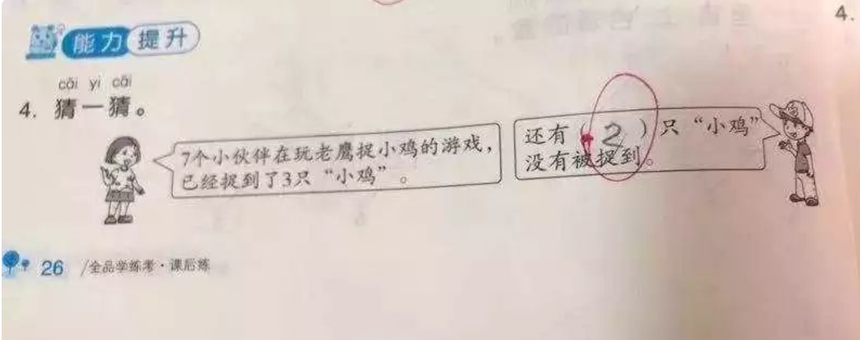 4.
能力提升
cāi yi cāi
4. 猜一猜。
7个小伙伴在玩老鹰捉小鸡的游戏，
已经捉到了3只“小鸡”。
还有（2）只“小鸡”
没有被捉到。
26 /全品学练考·课后练